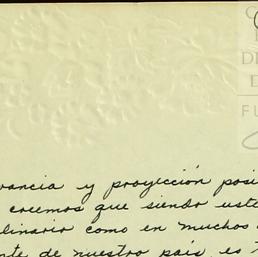 rancia y proyicción posi
creemos que siendo uste
linario como en muchos
nte de nuestro país, es